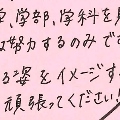 、学部、学科を
努力するのみで
る姿をイメージす
頑張ってください!